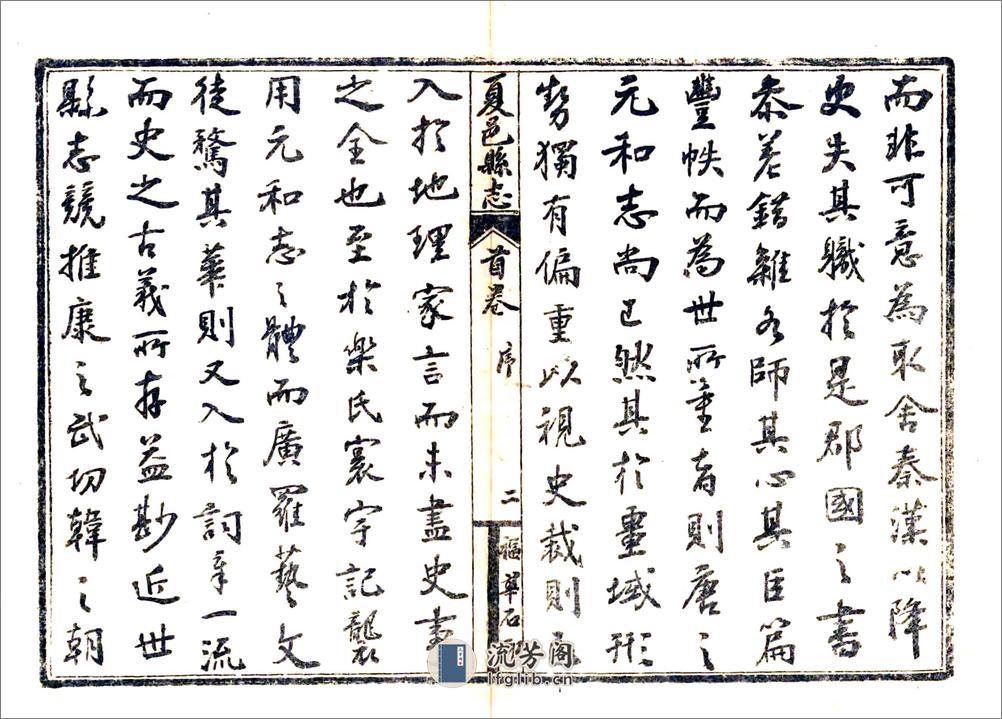 而非可意為取舍秦漢以降
史失其職於是郡國之書
叅差錯雜各師其心其巨篇
豐帙而為世所重者則唐之
元和志尚已然其於畺域形
勢獨有偏重以視史裁則
夏邑縣志 首卷 序 二 石
入於地理家言而未盡史書
之全也至於樂氏寰宇記襲
用元和志之體而廣羅藝文
徒騖其華則又入於詞章一流
而史之古義所存益尠近世
縣志競推康之武功韓之朝
流芳阁
lfglib.cn